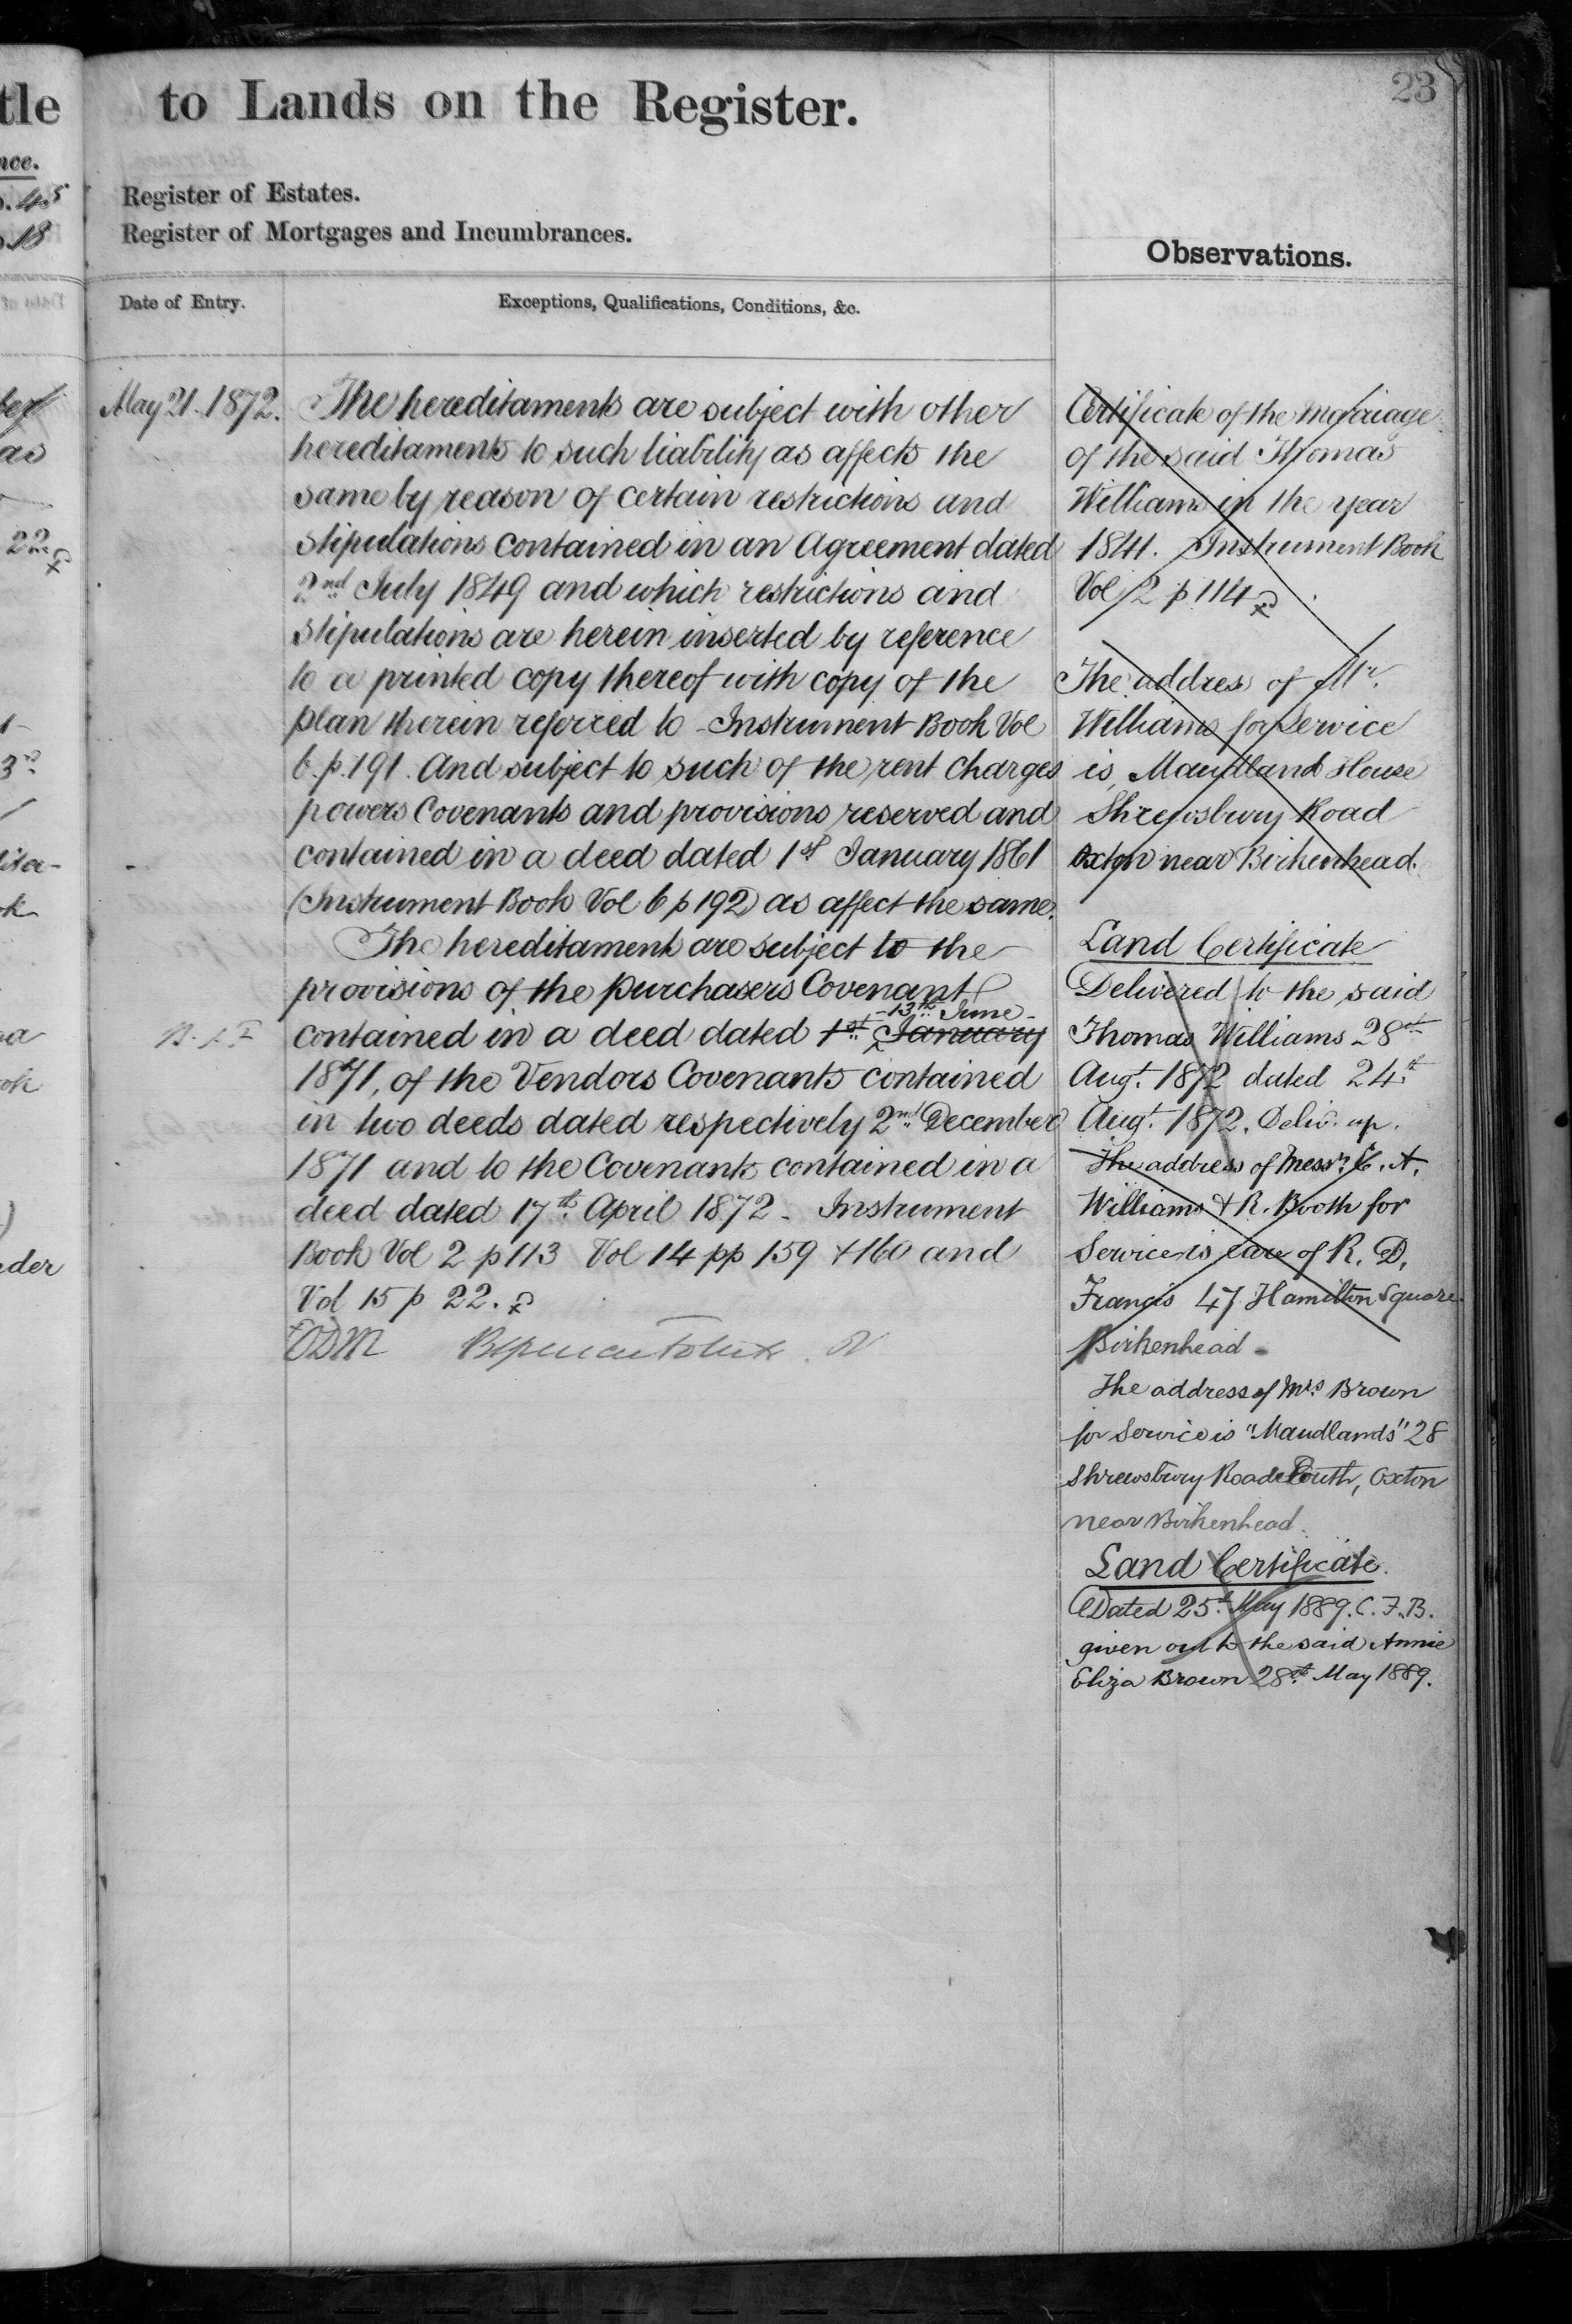 tle to Lands on the Register.
23
nce.
.45
.18
Register of Estates.
Register of Mortgages and Incumbrances.
Observations.
Date of Entry.
Exceptions, Qualifications, Conditions, &c.
May 21. 1872.
The hereditaments are subject with other
hereditaments to such liability as affects the
same by reason of certain restrictions and
stipulations contained in an Agreement dated
2nd July 1849 and which restrictions and
stipulations are herein inserted by reference
to a printed copy thereof with copy of the
plan therein referred to - Instrument Book Vol
6. p. 191. And subject to such of the rent charges
powers covenants and provisions reserved and
contained in a deed dated 1st January 1861
(Instrument Book Vol 6 p 192) as affect the same.
The hereditaments are subject to the
provisions of the purchasers Covenant
- 13th June -
contained in a deed dated 1st January
1871, of the Vendors Covenants contained
in two deeds dated respectively 2nd December
1871 and to the Covenants contained in a
deed dated 17th April 1872 - Instrument
Book Vol 2 p 113 Vol 14 pp 159 + 160 and
Vol 15 p 22.
Certificate of the Marriage
of the said Thomas
Williams in the year
1841. Instrument Book
Vol 2 p 114
The address of Mr.
Williams for Service
is Maudland House
Shrewsbury Road
Oxton near Birkenhead.
Land Certificate
Delivered to the said
Thomas Williams 28th
Augt. 1872 dated 24th
Augt. 1872. Delivd. up.
The address of Messrs. T. A.
Williams & R. Booth for
Service is care of R. D.
Francis 47 Hamilton Square
Birkenhead -
The address of Mrs Brown
for Service is "Maudlands" 28
Shrewsbury Road South, Oxton
near Birkenhead.
Land Certificate.
Dated 25th May 1889. C. F. B.
given out to the said Annie
Eliza Brown 28th May 1889.